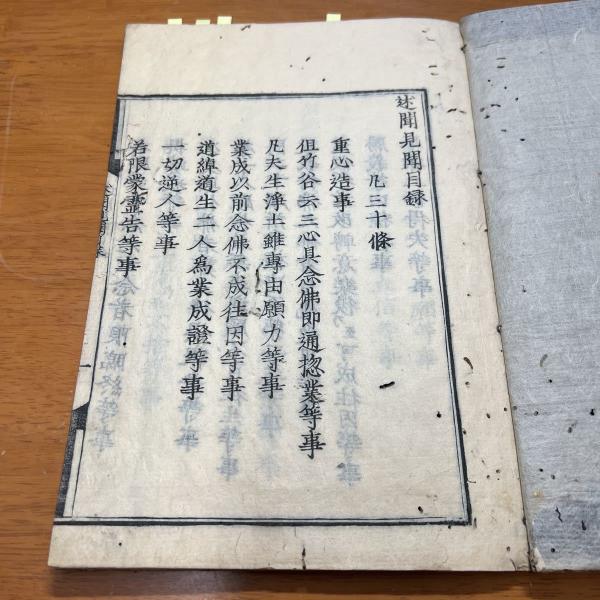 述聞見聞目録
凡三十條
重心造事
但竹谷云三心具念佛即通惣業等事
凡夫生浄土雖專由願力等事
業成以前念佛不成往因等事
道綽道生二人為業成證等事
一切逆人等事
若限蒙靈告等事